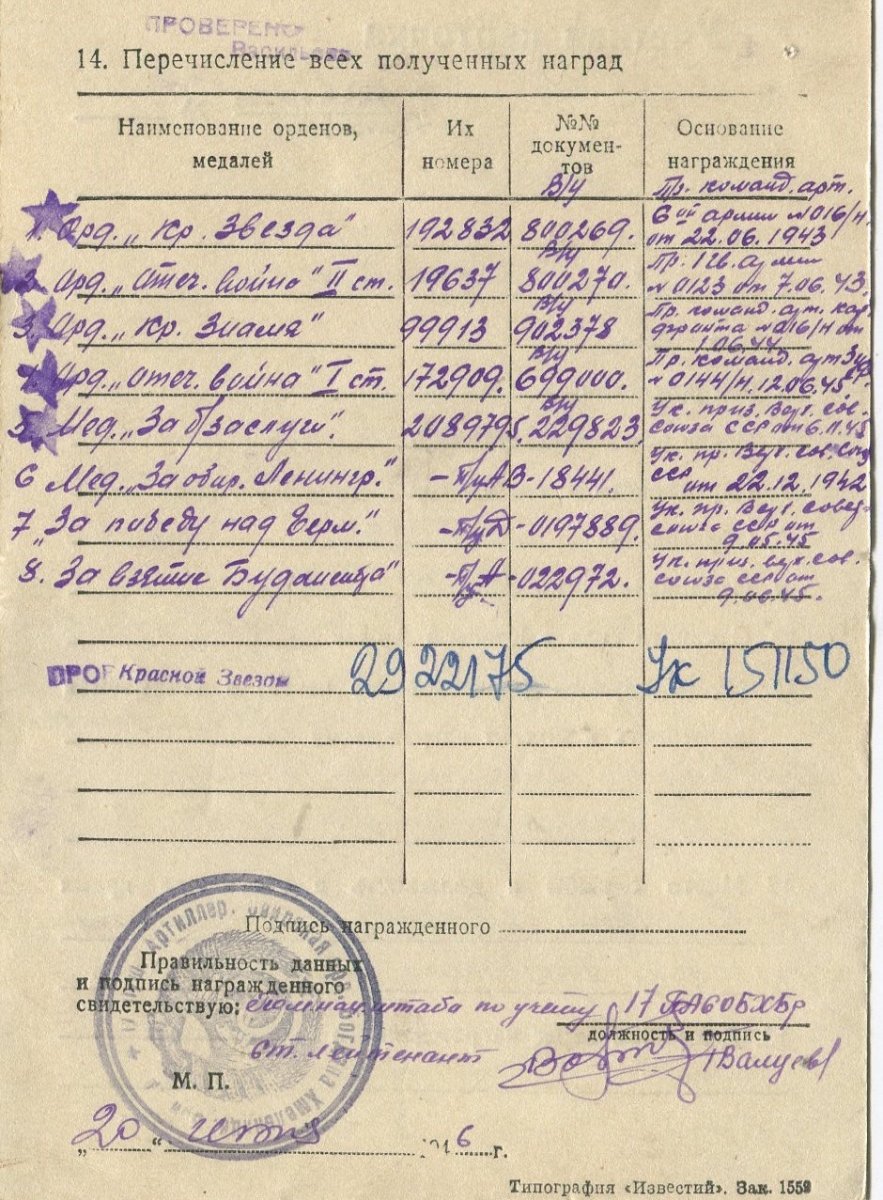 ПРОВЕРЕНО
Васильева
14. Перечисление всех полученных наград
Наименование орденов, медалей
Их номера
№№ докумен-тов
Основание награждения
1. Орд. „Кр. Звезда" 192832 в/у 800269. Пр. команд. арт. 6ой армии №016/н. от 22.06.1943
2. Орд. „Отеч. война" II ст. 19637 в/у 800270. Пр. 1 гв. армии №0123 от 7.06.43.
3. Орд. „Кр. Знамя" 99913 в/у 902378 Пр. команд. арт. фронта №016/н от
4. Орд. „Отеч. война" I ст. 172909. в/у 699000. Пр. команд. арт. №0144/н. 12.06.45
5. Мед. „За б/заслуги". 2089795. в/у 229823. Ук. през. Верх. Сов. Союза ССР от 6.11.45
6 Мед. „За обор. Ленингр." - А В-18441. Ук. пр. Верх. Сов. ССР от 22.12.1942
7 „За победу над Герм." - Д-0197889. Ук. пр. Верх. Совет. Союза ССР от 9.05.45
8. За взятие Будапешта" - А-022972. Ук. през. верх. сов. союза ССР от 9.06.45.
Красной Звезды 2922175 Ук 151150
Подпись награжденного
Правильность данных
и подпись награженного
свидетельствую: Пом. нач. штаба по учету 17
должность и подпись
Ст. лейтенант
М. П.
„20" июня 1946 г.
Типография «Известий». Зак. 1559